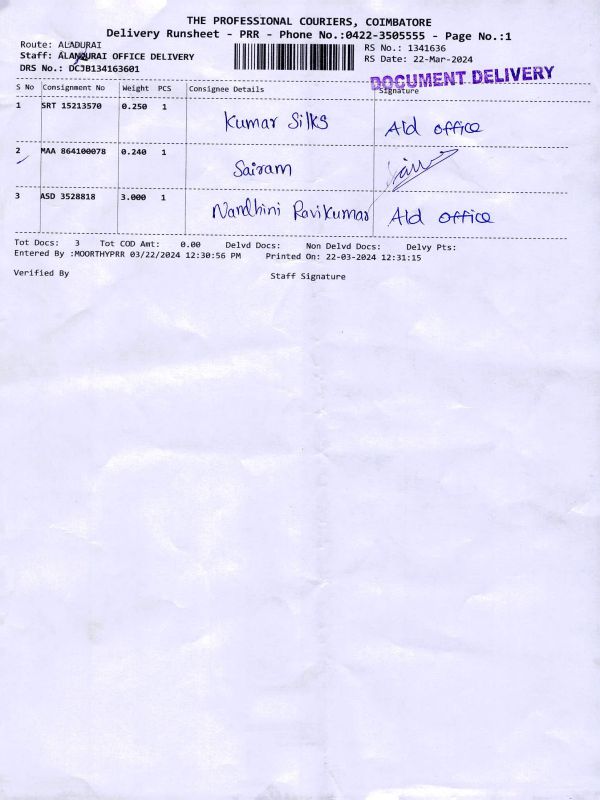 THE PROFESSIONAL COURIERS, COIMBATORE
Delivery Runsheet - PRR - Phone No.:0422-3505555 - Page No.:1
Route: ALADURAI
RS No.: 1341636
Staff: ALANDURAI OFFICE DELIVERY
RS Date: 22-Mar-2024
DRS No.: DCJB134163601
DOCUMENT DELIVERY
S No Consignment No Weight PCS Consignee Details Signature
1 SRT 15213570 0.250 1 Kumar Silks Ald office
2 MAA 864100078 0.240 1 Sairam
3 ASD 3528818 3.000 1 Nandhini Ravikumar Ald office
Tot Docs: 3 Tot COD Amt: 0.00 Delvd Docs: Non Delvd Docs: Delvy Pts:
Entered By :MOORTHYPRR 03/22/2024 12:30:56 PM Printed On: 22-03-2024 12:31:15
Verified By Staff Signature